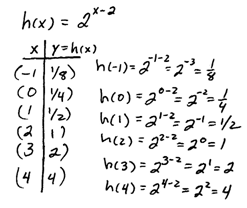 h(x) = 2^(x-2)
x | y = h(x)
(-1 | 1/8)
(0 | 1/4)
(1 | 1/2)
(2 | 1)
(3 | 2)
(4 | 4)
h(-1) = 2^(-1-2) = 2^(-3) = 1/8
h(0) = 2^(0-2) = 2^(-2) = 1/4
h(1) = 2^(1-2) = 2^(-1) = 1/2
h(2) = 2^(2-2) = 2^0 = 1
h(3) = 2^(3-2) = 2^1 = 2
h(4) = 2^(4-2) = 2^2 = 4